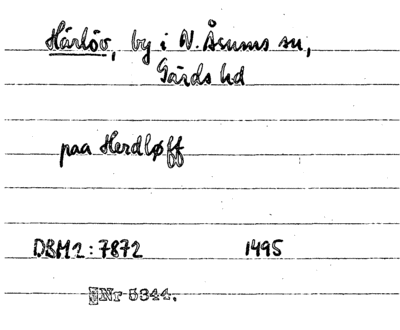 Härlöv, by i N. Åsums sn,
Gärds hd
paa Herdløff
DBM2:7872 1495
Nr 5344.